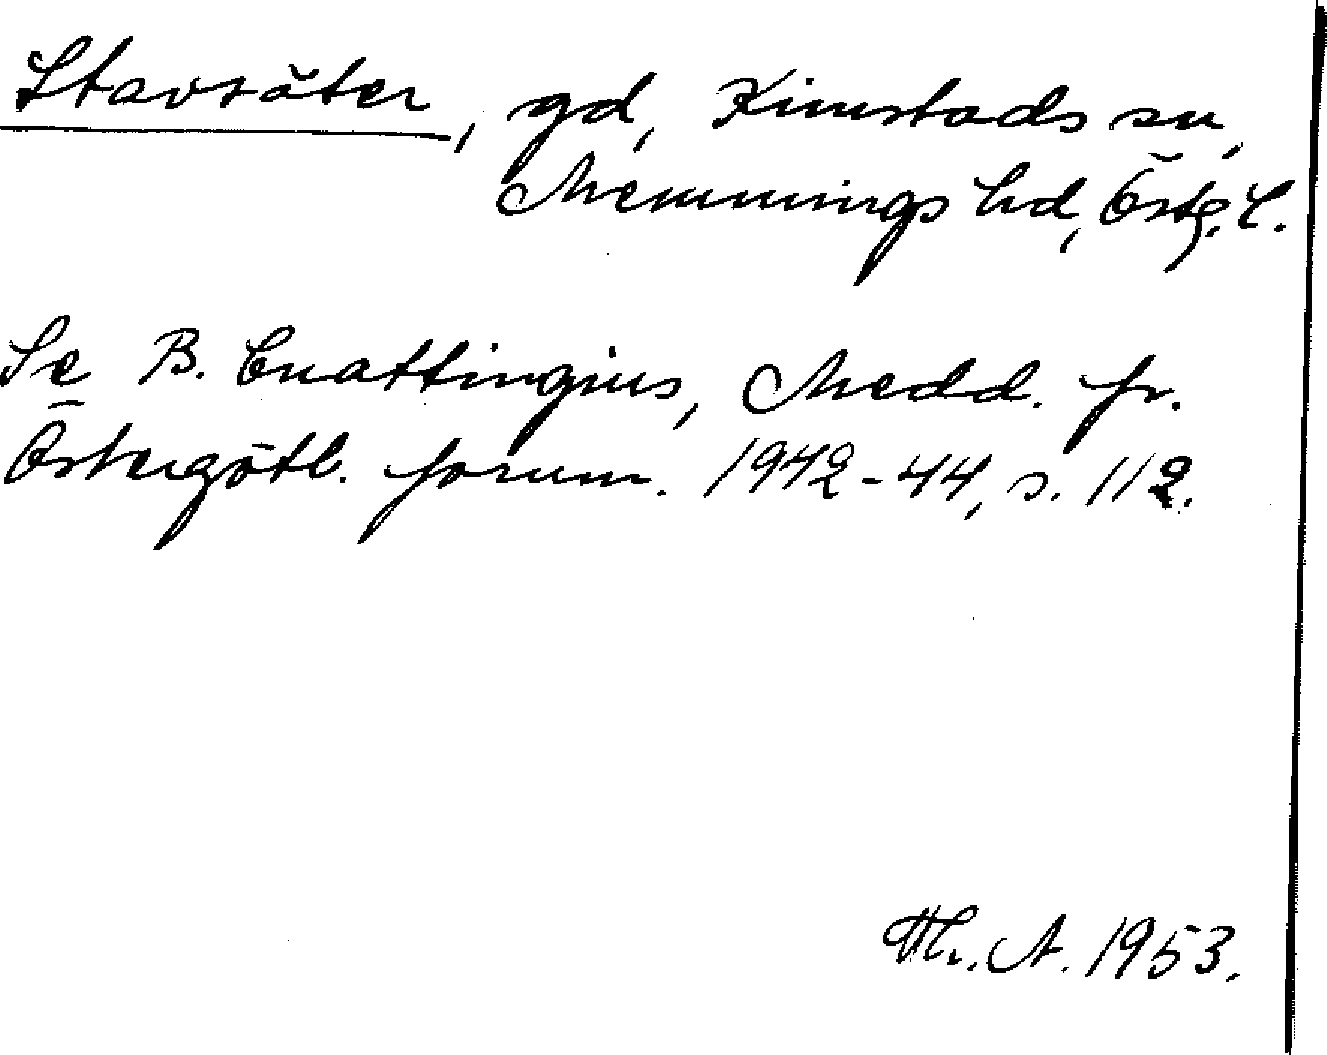 Stavsäter, gd, Kimstads sn,
Memmings hd, Östg. l.
Se B. Cnattingius, Medd. fr.
Östergötl. fornm. 1942-44, s. 112.
Th. A. 1953.